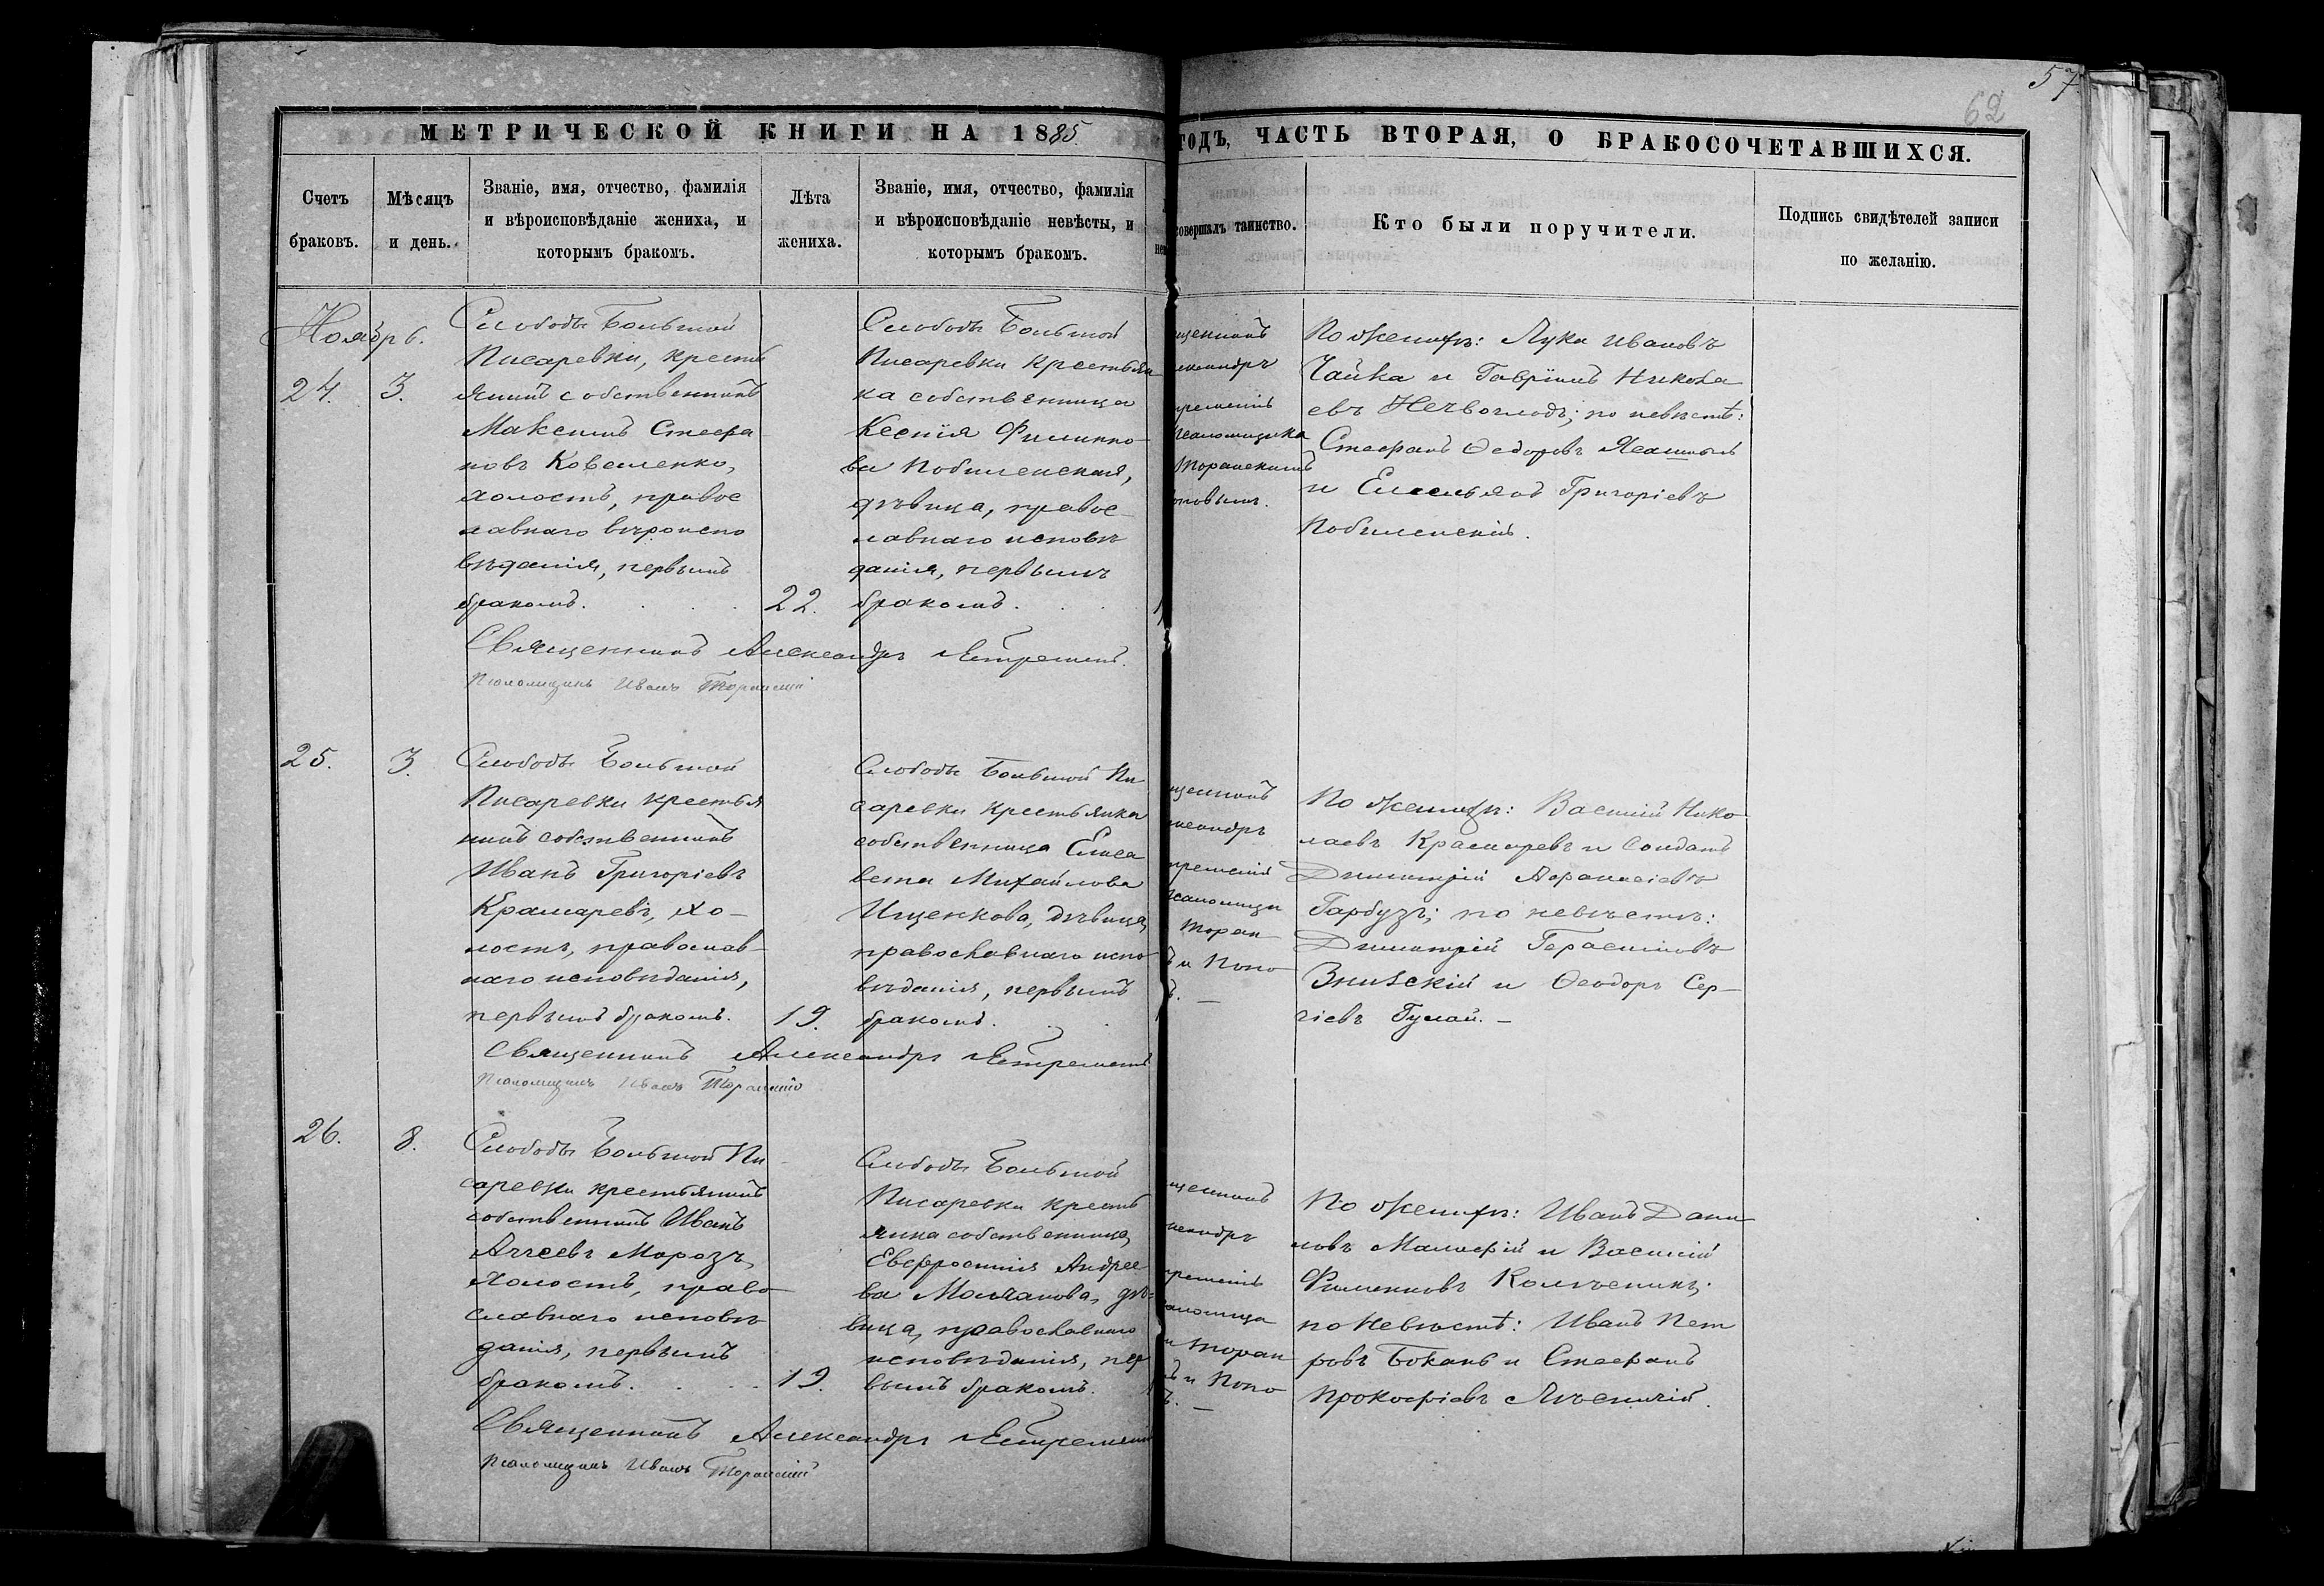 57
62
МЕТРИЧЕСКОЙ КНИГИ НА 1885
ГОДЪ, ЧАСТЬ ВТОРАЯ, О БРАКОСОЧЕТАВШИХСЯ.
Счетъ
браковъ.
Мѣсяцъ
и день.
Званіе, имя, отчество, фамилія
и вѣроисповѣданіе жениха, и
которымъ бракомъ.
Лѣта
жениха.
Званіе, имя, отчество, фамилія
и вѣроисповѣданіе невѣсты, и
которымъ бракомъ.
совершалъ таинство.
Кто были поручители.
Подпись свидѣтелей записи
по желанію.
Ноябрь.
24.
3.
Слободы Большой
Писаревки, кресть
янинъ собственникъ
Максимъ Стефа
новъ Коваленко,
холостъ, правос
лавнаго вѣроиспо
вѣданія, первымъ
бракомъ.
22.
Слободы Большой
Писаревки крестьян
ка собственница
Ксенія Филиппо
ва Побиленская,
дѣвица, правос
лавнаго исповѣ
данія, первымъ
бракомъ.
щенникъ
лександръ
псаломщика
Торанскимъ
По женихѣ: Лука Ивановъ
Чайка и Гавріилъ Никола
евъ Нечволодъ; по невѣстѣ:
Стефанъ Ѳедоровъ
и Емельянъ Григоріевъ
Побиленскій.
Священникъ Александръ
Псаломщикъ Иванъ Торанскій
25.
3.
Слободы Большой
Писаревки крестья
нинъ собственникъ
Иванъ Григоріевъ
Крамаревъ, хо-
лостъ, православ-
наго исповѣданія,
первымъ бракомъ.
19.
Слободы Большой Пи
саревки крестьянка
собственница Елиса
вета Михайлова
Ищенкова, дѣвица,
православнаго испо
вѣданія, первымъ
бракомъ.
щенникъ
лександръ
псаломщи
Торан
ъ и Поно
ъ. —
По женихѣ: Василій Нико
лаевъ Крамаревъ и Солдатъ
Димитрій Аѳанасіевъ
Гарбузъ; по невѣстѣ:
Димитрій Герасимовъ
Зниѣвскій и Ѳеодоръ Сер-
гіевъ Гулай. —
Священникъ Александръ
Псаломщикъ Иванъ Торанскій
26.
8.
Слободы Большой Пи
саревки крестьянинъ
собственникъ Иванъ
Аггеевъ Морозъ,
холостъ, право
славнаго исповѣ
данія, первымъ
бракомъ.
19.
Слободы Большой
Писаревки кресть
янка собственница,
Евфросинія Андрее
ва Молчанова, дѣ-
вица, православнаго
исповѣданія, пер
вымъ бракомъ.
щенникъ
лександръ
саломщи
Торан
ъ и Поно
ъ. —
По женихѣ: Иванъ Дани
ловъ и Василій
Филипповъ Колѣсникъ;
по невѣстѣ: Иванъ Пет
ровъ Боканъ и Стефанъ
Прокофіевъ
Священникъ Александръ
Псаломщикъ Иванъ Торанскій